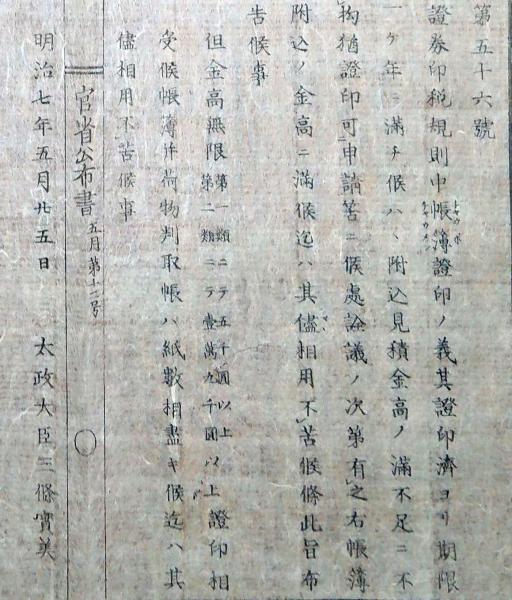 第五十六號
證券印税規則中帳簿證印ノ義其證印濟ヨリ期限
一ケ年ニ滿チ候ハヽ附込見積金高ノ滿不足ニ不
拘猶證印可申請筈ニ候處詮議ノ次第有之右帳簿
附込ノ金高ニ滿候迄ハ其儘相用不苦候條此旨布
告候事
但金高無限第一類ニテ五千圓以上第二類ニテ壹萬九千圓以上證印相
受候帳簿幷荷物判取帳ハ紙數相盡キ候迄ハ其
儘相用不苦候事
官省公布書 五月第十二号
明治七年五月廿五日 太政大臣三條實美